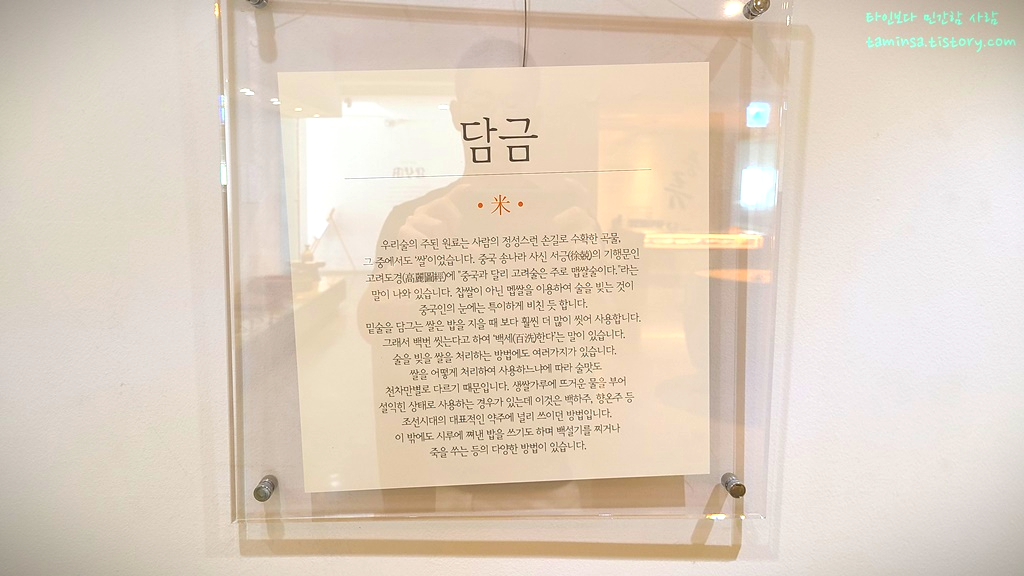 타인보다 민감한 사람
taminsa.tistory.com
담금
• 米 •
우리술의 주된 원료는 사람의 정성스런 손길로 수확한 곡물,
그 중에서도 '쌀'이었습니다. 중국 송나라 사신 서긍(徐兢)의 기행문인
고려도경(高麗圖經)에 "중국과 달리 고려술은 주로 맵쌀술이다."라는
말이 나와 있습니다. 찹쌀이 아닌 멥쌀을 이용하여 술을 빚는 것이
중국인의 눈에는 특이하게 비친 듯 합니다.
밑술을 담그는 쌀은 밥을 지을 때 보다 훨씬 더 많이 씻어 사용합니다.
그래서 백번 씻는다고 하여 '백세(百洗)한다'는 말이 있습니다.
술을 빚을 쌀을 처리하는 방법에도 여러가지가 있습니다.
쌀을 어떻게 처리하여 사용하느냐에 따라 술맛도
천차만별로 다르기 때문입니다. 생쌀가루에 뜨거운 물을 부어
설익힌 상태로 사용하는 경우가 있는데 이것은 백하주, 향온주 등
조선시대의 대표적인 약주에 널리 쓰이던 방법입니다.
이 밖에도 시루에 쪄낸 밥을 쓰기도 하며 백설기를 찌거나
죽을 쑤는 등의 다양한 방법이 있습니다.